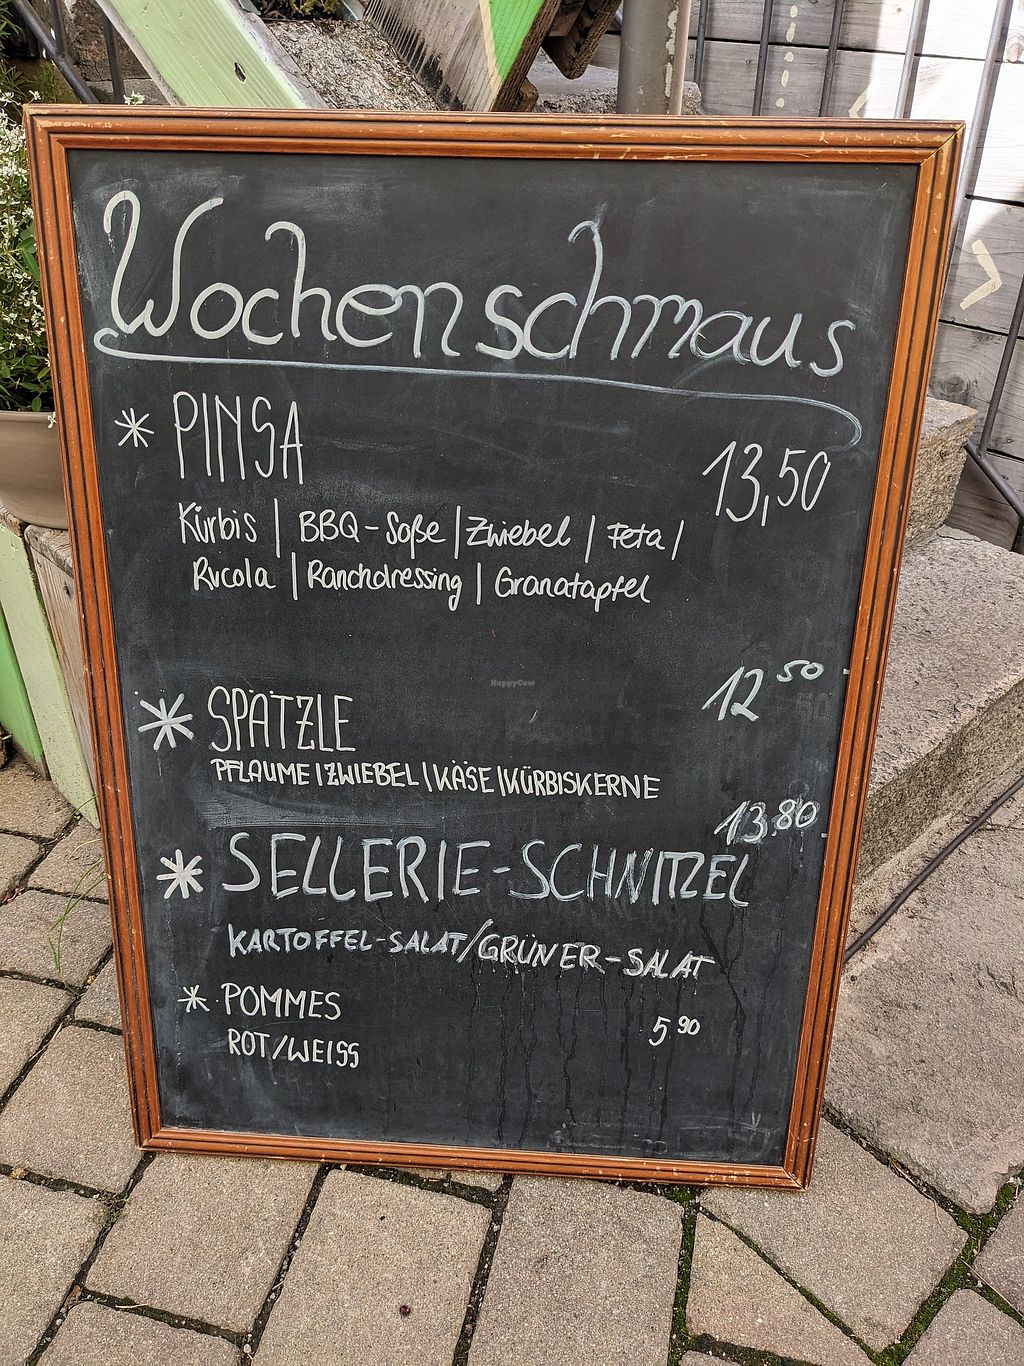 Wochenschmaus
* PINSA 13,50
Kürbis | BBQ-Soße | Zwiebel | Feta |
Rucola | Ranchdressing | Granatapfel
HappyCow
* SPÄTZLE 12 50
PFLAUME | ZWIEBEL | KÄSE | KÜRBISKERNE
13.80
* SELLERIE-SCHNITZEL
KARTOFFEL-SALAT/GRÜNER-SALAT
* POMMES 5 90
ROT/WEISS